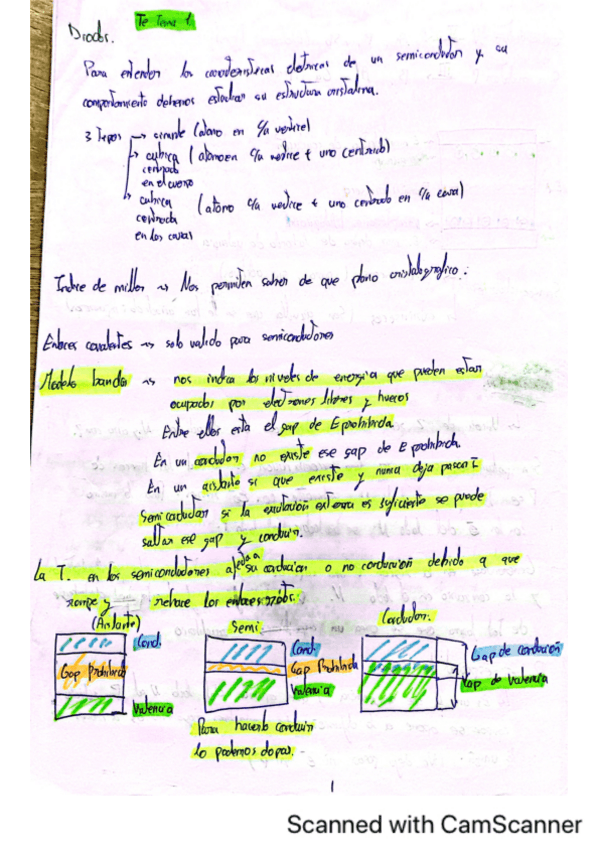 Te Tema 1.
Diodos.
Para entender las características eléctricas de un semiconductor y su
comportamiento debemos estudiar su estructura cristalina.
3 tipos → simple (átomo en c/a vertice)
→ cubica (atomo en c/a vertice + uno centrado)
centrado
en el cuerpo
→ cubica (atomo c/a vertice + uno centrado en c/a cara)
centrada
en las caras
Indice de miller → Nos permiten saber de que plano cristalografico:
Enlaces covalentes → solo valido para semiconductores
Modelo bandas → nos indica los niveles de energia que pueden estar
ocupados por electrones libres y huecos
Entre ellos esta el gap de E prohibida.
En un conductor no existe ese gap de E prohibida.
En un aislante si que existe y nunca deja pasar I
Semiconductor si la excitación externa es suficiente se puede
saltar ese gap y conducir.
La T. en los semiconductores afecta a su conducion o no conducción debido a que
rompe y rehace los enlaces
(Aislante)
Semi.
Conductor.
Cond.
Gap Prohibido
Valencia
Cond.
Gap Prohibida
Valencia
Gap de conducción
Gap de Valencia
Para hacerlo conducir
lo podemos dopar.
1
Scanned with CamScanner